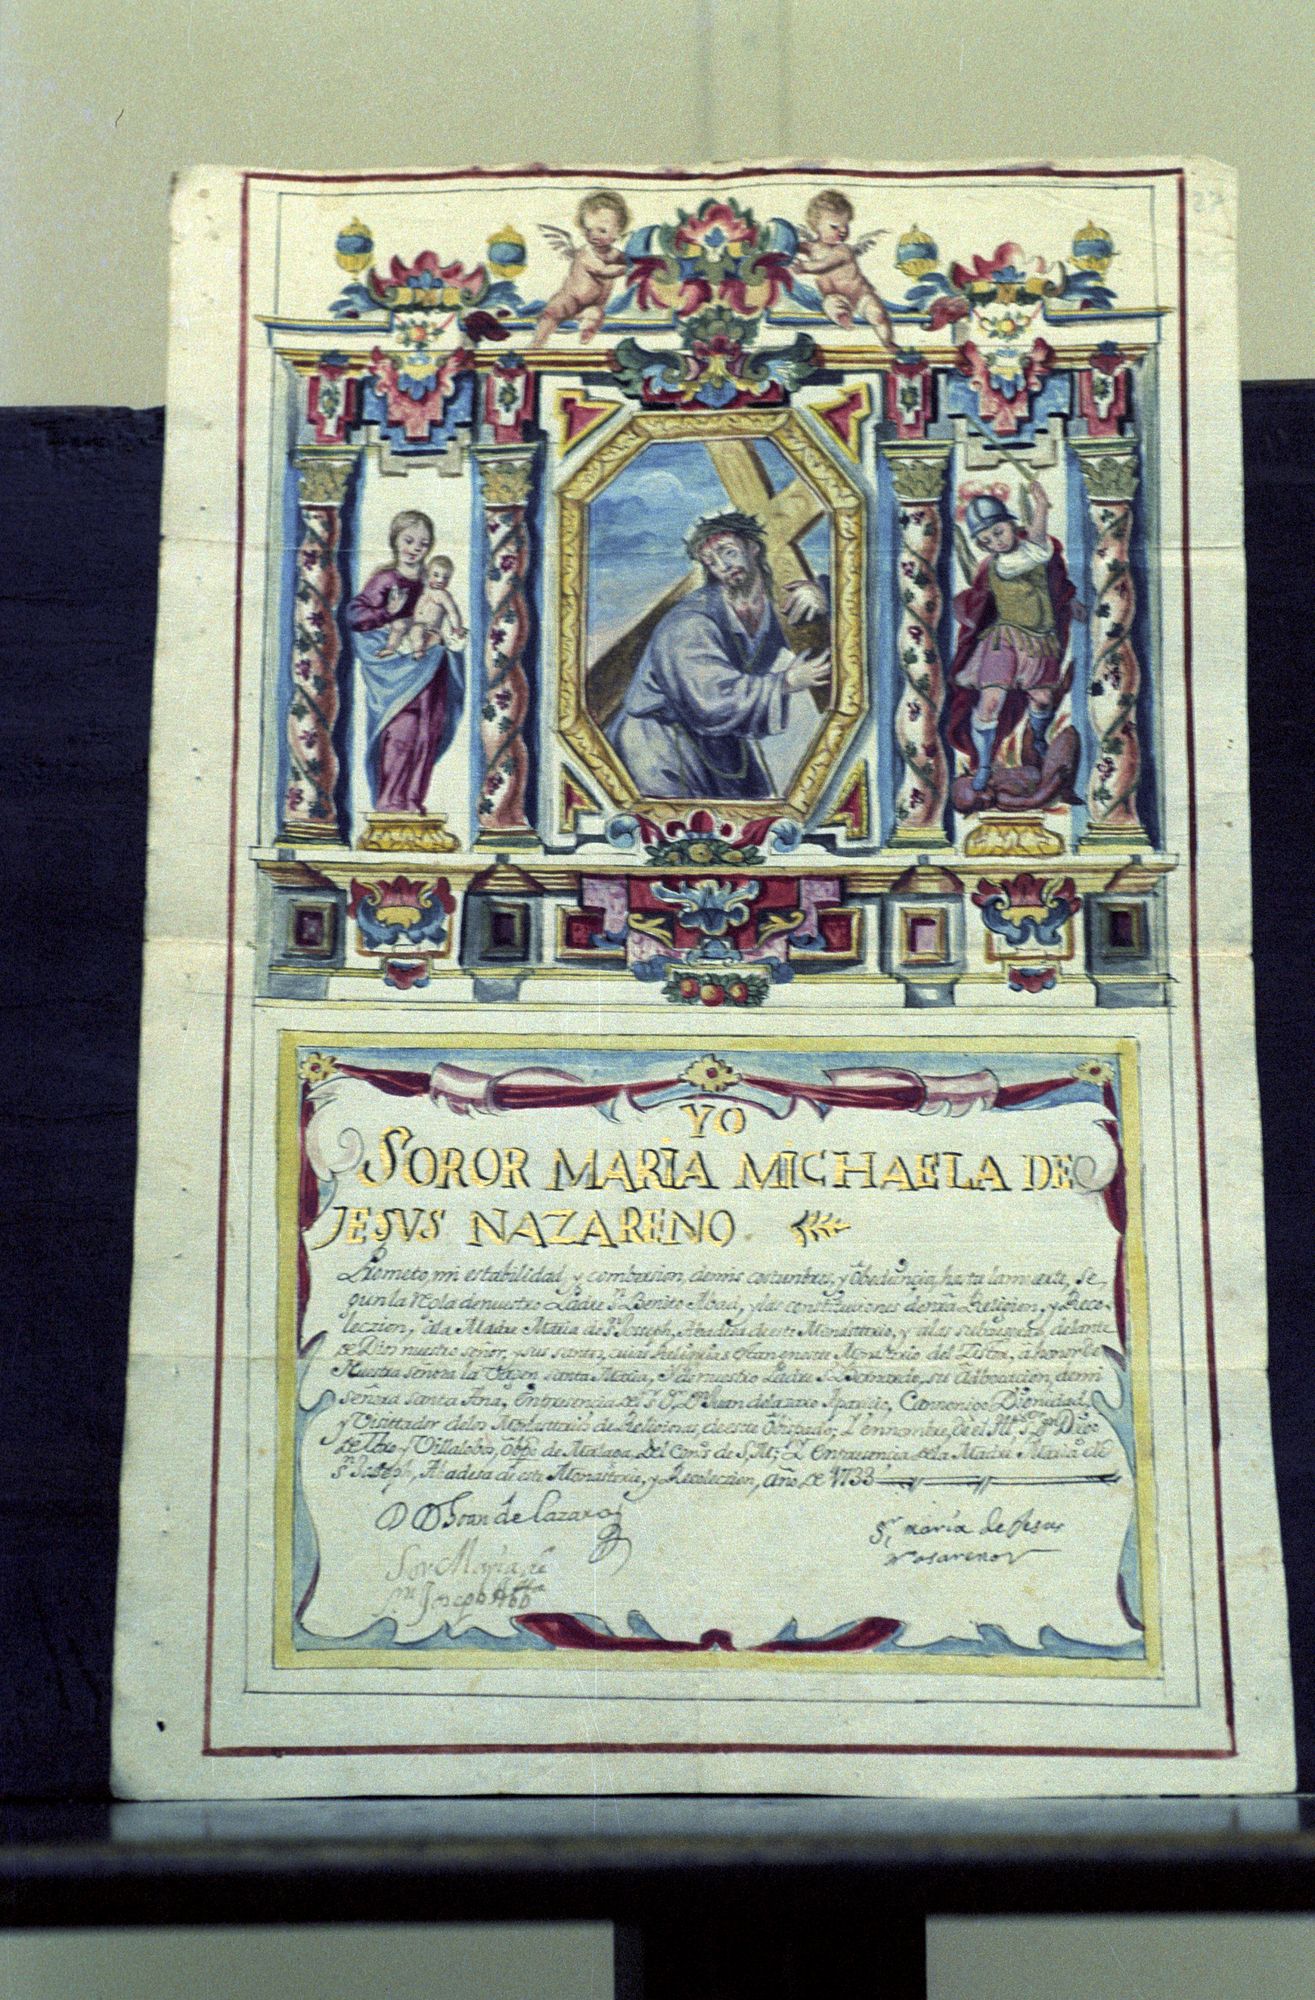 27
YO
SOROR MARIA MICHAELA DE
JESUS NAZARENO.
Prometo, mi estabilidad, y combersion, demis costumbres, y obediencia, hasta la muerte, Se
gun la Rgla de nuestro Padre Sn. Benito Abad, y las constituciones de nra Religion, y Reco-
leczion, à la Madre Maria de Sn. Joseph, Abadesa de este Monasterio, y delante
de Dios nuestro señor, y sus santos, cuias Reliquias estan en este Monasterio del Zister, à honor de
Nuestra señora la Virgen santa Maria, y de nuestro Padre Sn. Bernardo, su Advocacion, de mi
señora santa Ana; En presencia del Sr. Dr. Dn. Juan de lazaro Aparizio, Canonigo Dignidad,
y Visittador de los Monasterios de Religiosas, de este Obispado; Y en nombre, de el Sr. Dn. Diego
de Toro y Villalobos, obpo. de Malaga, del Cons. de S.M; Y en presencia de la Madre Maria de
Sn. Joseph, Abadesa de este Monasterio, y Recoleccion, año de 1733
D D Joan de Lazaro
Sr. maria de Jesus
nasareno
Sor Maria de
Sn Joseph Abb